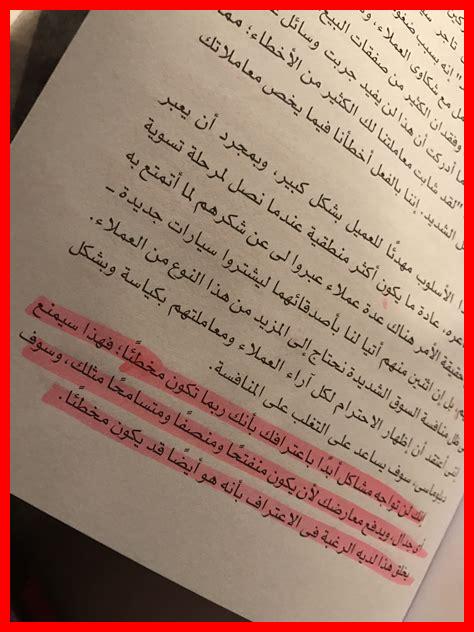 تاجر
" إنه بسبب ضغوط
مل مع شكاوى العملاء،
وفقدان الكثير من صفقات البيع
ما أدركت أن هذا لن يفيد جربت وسائل
"لقد شابت معاملتنا لك الكثير من الأخطاء؛
الشديد. إننا بالفعل أخطأنا فيما يخص معاملاتك
ا الأسلوب مهدئًا للعميل بشكل كبير، وبمجرد أن يعبر
عره، عادة ما يكون أكثر منطقية عندما نصل لمرحلة تسوية
حقيقة الأمر هناك عدة عملاء عبروا لى عن شكرهم لما أتمتع به
بل إن اثنين منهم أتيا لنا بأصدقائهما ليشتروا سيارات جديدة –
ظل منافسة السوق الشديدة نحتاج إلى المزيد من هذا النوع من العملاء.
أعتقد أن إظهار الاحترام لكل آراء العملاء ومعاملتهم بكياسة وبشكل
دبلوماسى، سوف يساعد على التغلب على المنافسة.
إنك لن تواجه مشاكل أبدًا باعترافك بأنك ربما تكون مخطئًا؛ فهذا سيمنع
أى جدال، ويدفع معارضك لأن يكون منفتحًا ومنصفًا ومتسامحًا مثلك، وسوف
يخلق هذا لديه الرغبة فى الاعتراف بأنه هو أيضًا قد يكون مخطئًا.